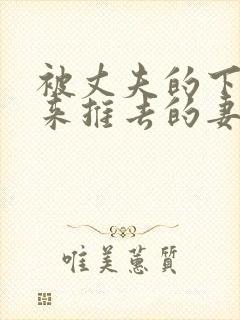 被丈夫的下
来推去的妻
唯美蕙質